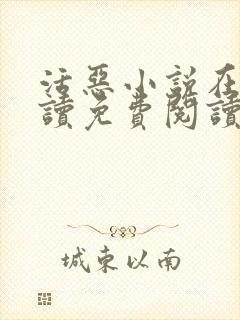 活惡小說在
讀免費閱讀
城東以南